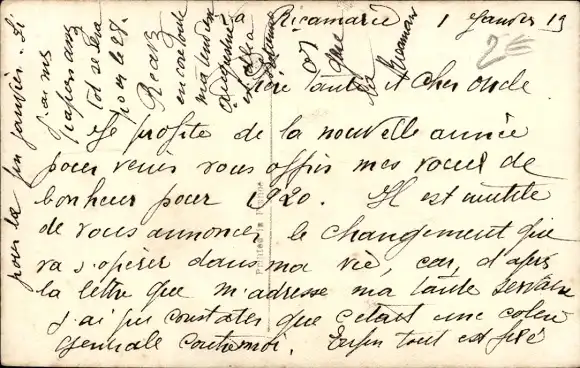 La Ricamarie 1 Janvier 19
2€
chère tante et cher oncle
Je profite de la nouvelle année
pour venir vous offrir mes voeux de
bonheur pour 1920. Il est inutile
de vous annoncer le changement que
va s'opérer dans ma vie, car, d'après
la lettre que m'adresse ma tante
j'ai pu constater que c'était une colère
contre moi. Enfin tout est fixé
pour la fin janvier. Si
j'ai mes
papiers
tot se sera
pour le 28.
encore
ma
et la
on
que
la
maman
Printed in